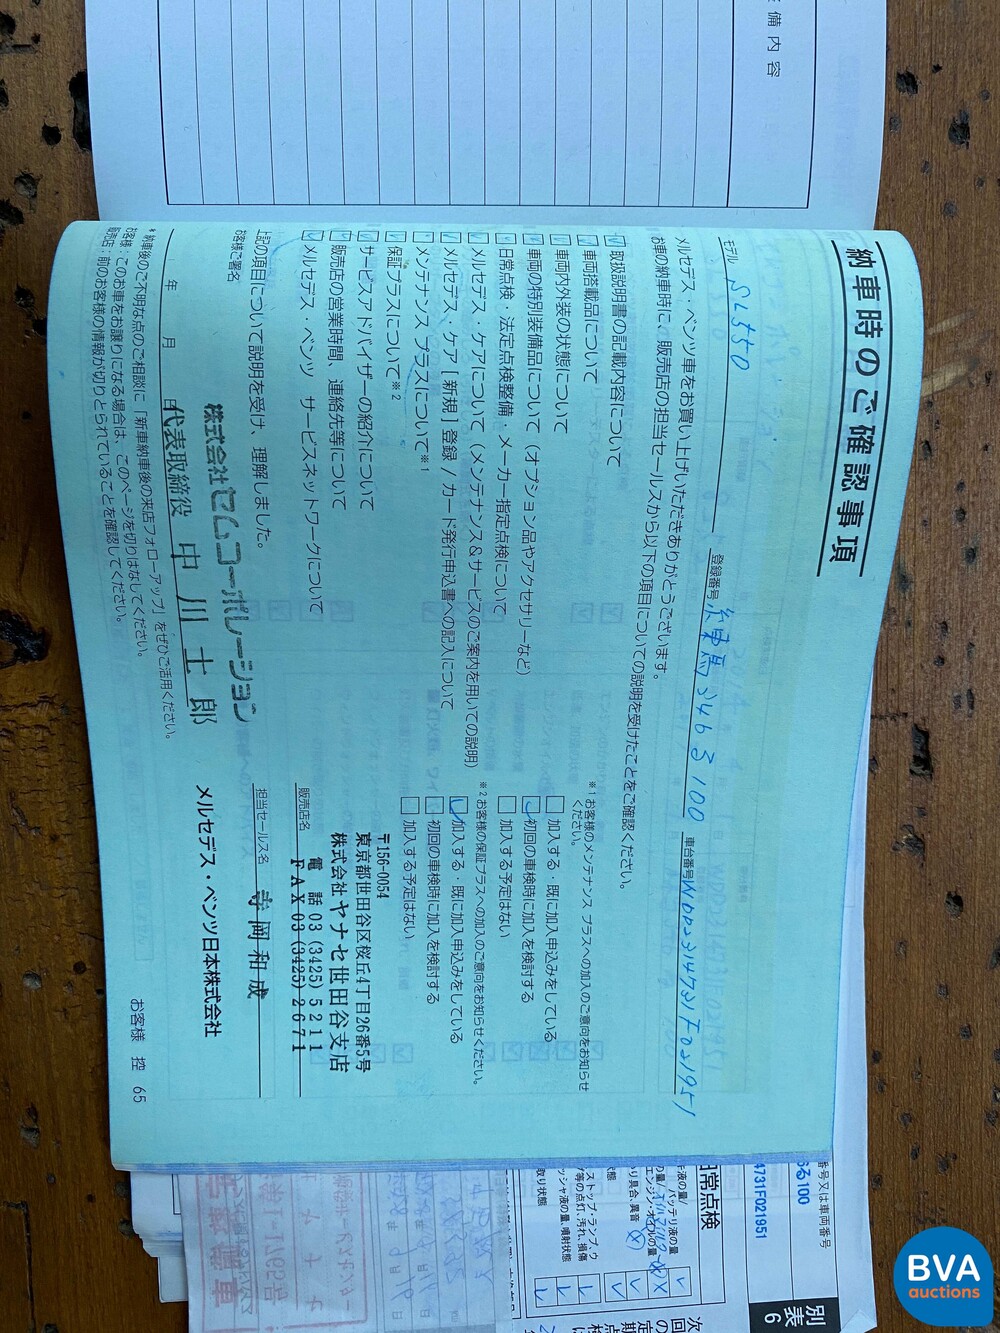 備内容
納車時のご確認事項
モデル SL550
登録番号 練馬 346 る 100
車台番号 WDD2314731F021951
メルセデス・ベンツ車をお買い上げいただきありがとうございます。
お車の納車時に、販売店の担当セールスから以下の項目についての説明を受けたことをご確認ください。
取扱説明書の記載内容について
車両搭載品について
車両内外装の状態について
車両の特別装備品について（オプション品やアクセサリーなど）
日常点検・法定点検整備・メーカー指定点検について
メルセデス・ケアについて（メンテナンス&サービスのご案内を用いての説明）
メルセデス・ケア [新規] 登録 / カード発行申込書への記入について
メンテナンス プラスについて※1
保証プラスについて※2
サービスアドバイザーの紹介について
販売店の営業時間、連絡先等について
メルセデス・ベンツ サービスネットワークについて
※1 お客様のメンテナンス プラスへの加入のご意向をお知らせ
ください。
加入する・既に加入申込みをしている
初回の車検時に加入を検討する
加入する予定はない
※2 お客様の保証プラスへの加入のご意向をお知らせください。
加入する・既に加入申込みをしている
初回の車検時に加入を検討する
加入する予定はない
上記の項目について説明を受け、理解しました。
お客様ご署名
株式会社セムコーポレーション
年 月 日 代表取締役 中川士郎
〒156-0054
東京都世田谷区桜丘4丁目26番5号
株式会社ヤナセ世田谷支店
電話 03 (3425) 5211
FAX 03 (3425) 2671
販売店名
担当セールス名 寺岡和成
メルセデス・ベンツ日本株式会社
*納車後のご不明な点のご相談に「新車納車後の来店フォローアップ」をぜひご活用ください。
お客様:このお車をお譲りになる場合は、このページを切りはなしてください。
販売店:前のお客様の情報が切りとられていることを確認してください。
お客様 控 65
番号又は車両番号
る100
4731F021951
別表6
日常点検
バッテリ液の量
エンジン・オイルの量
異音
ストップ・ランプ、ウ
等の点灯、汚れ、損傷
ッシャ液の量、噴射状態
取り状態
BVA
auctions